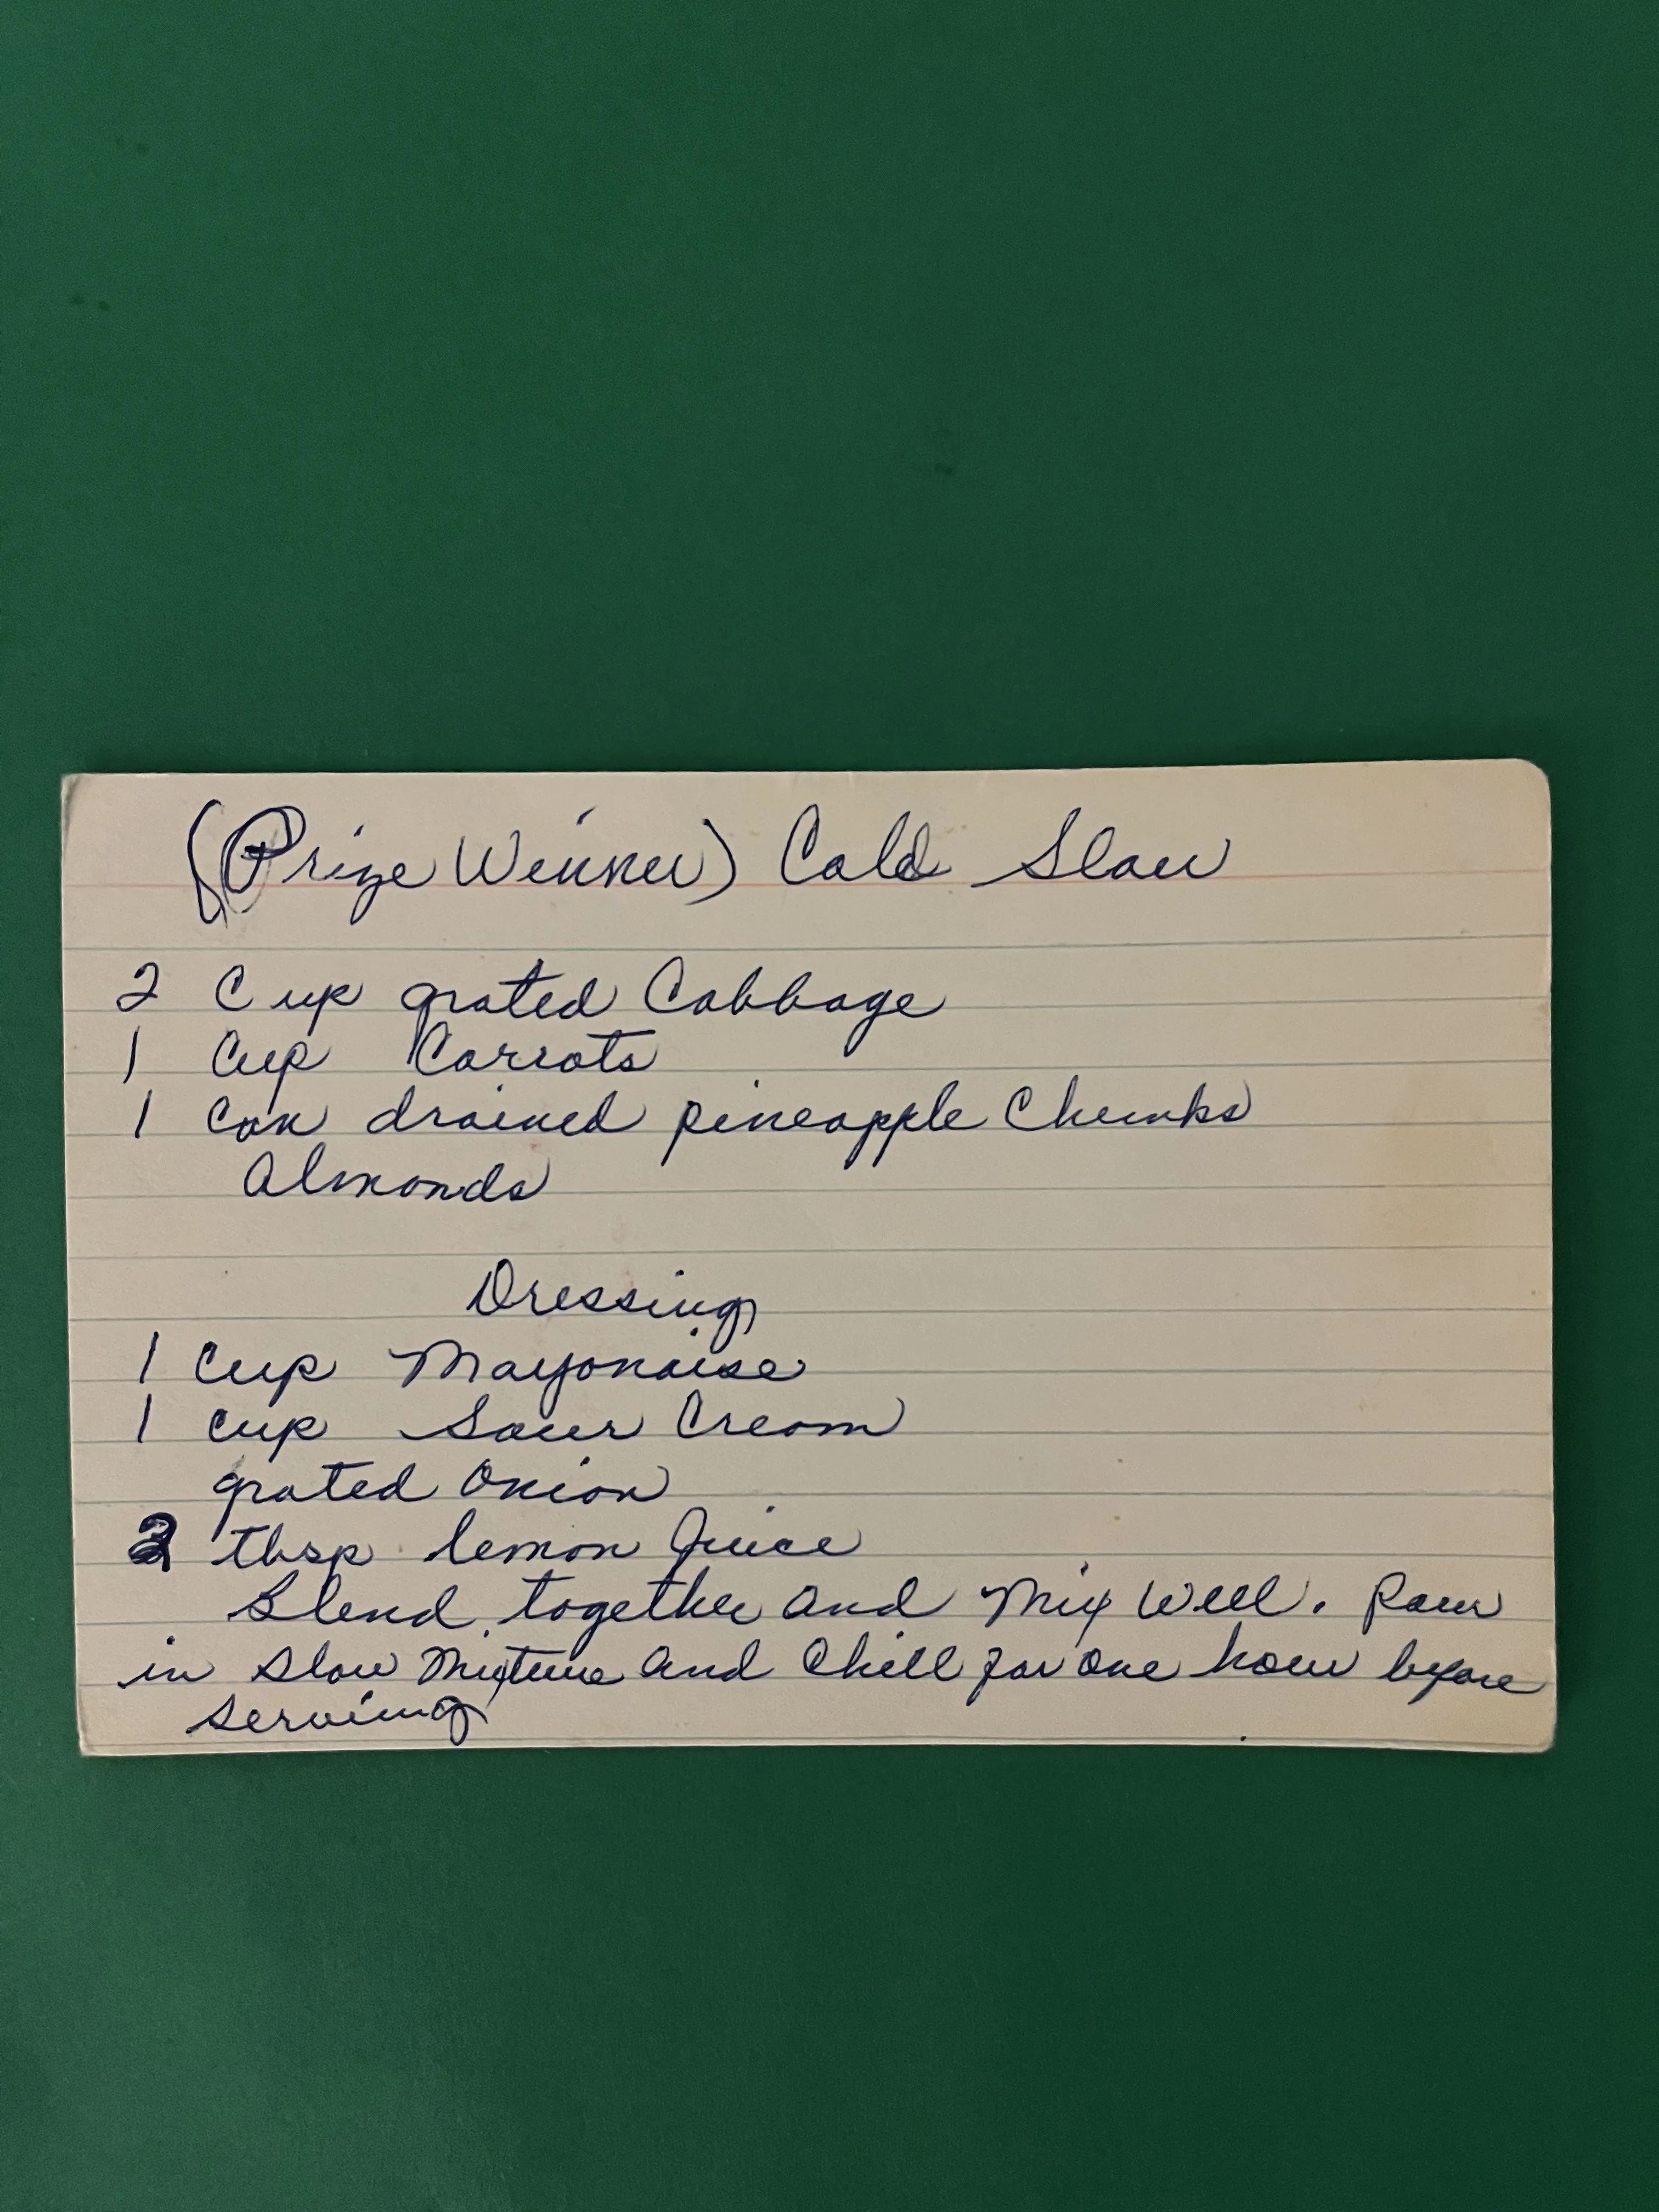 (Prize Winner) Cold Slaw
2 Cup grated Cabbage
1 Cup Carrots
1 Can drained pineapple Chunks
Almonds
Dressing
1 Cup Mayonaise
1 cup Sour Cream
grated Onion
2 tbsp lemon Juice
Blend together and Mix Well. Pour
in Slaw Mixture and Chill for one hour before
serving